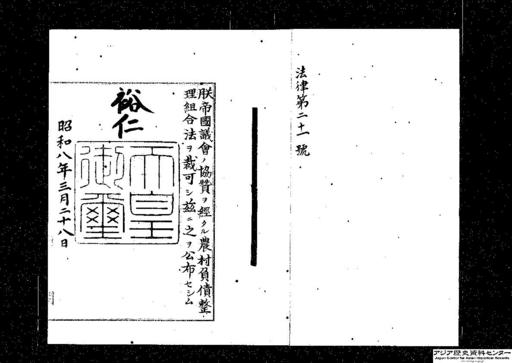 法律第二十一號
朕帝國議會ノ協賛ヲ經タル農村負債整
理組合法ヲ裁可シ茲ニ之ヲ公布セシム
裕仁
天皇
御璽
昭和八年三月二十八日
アジア歴史資料センター
Japan Center for Asian Historical Records